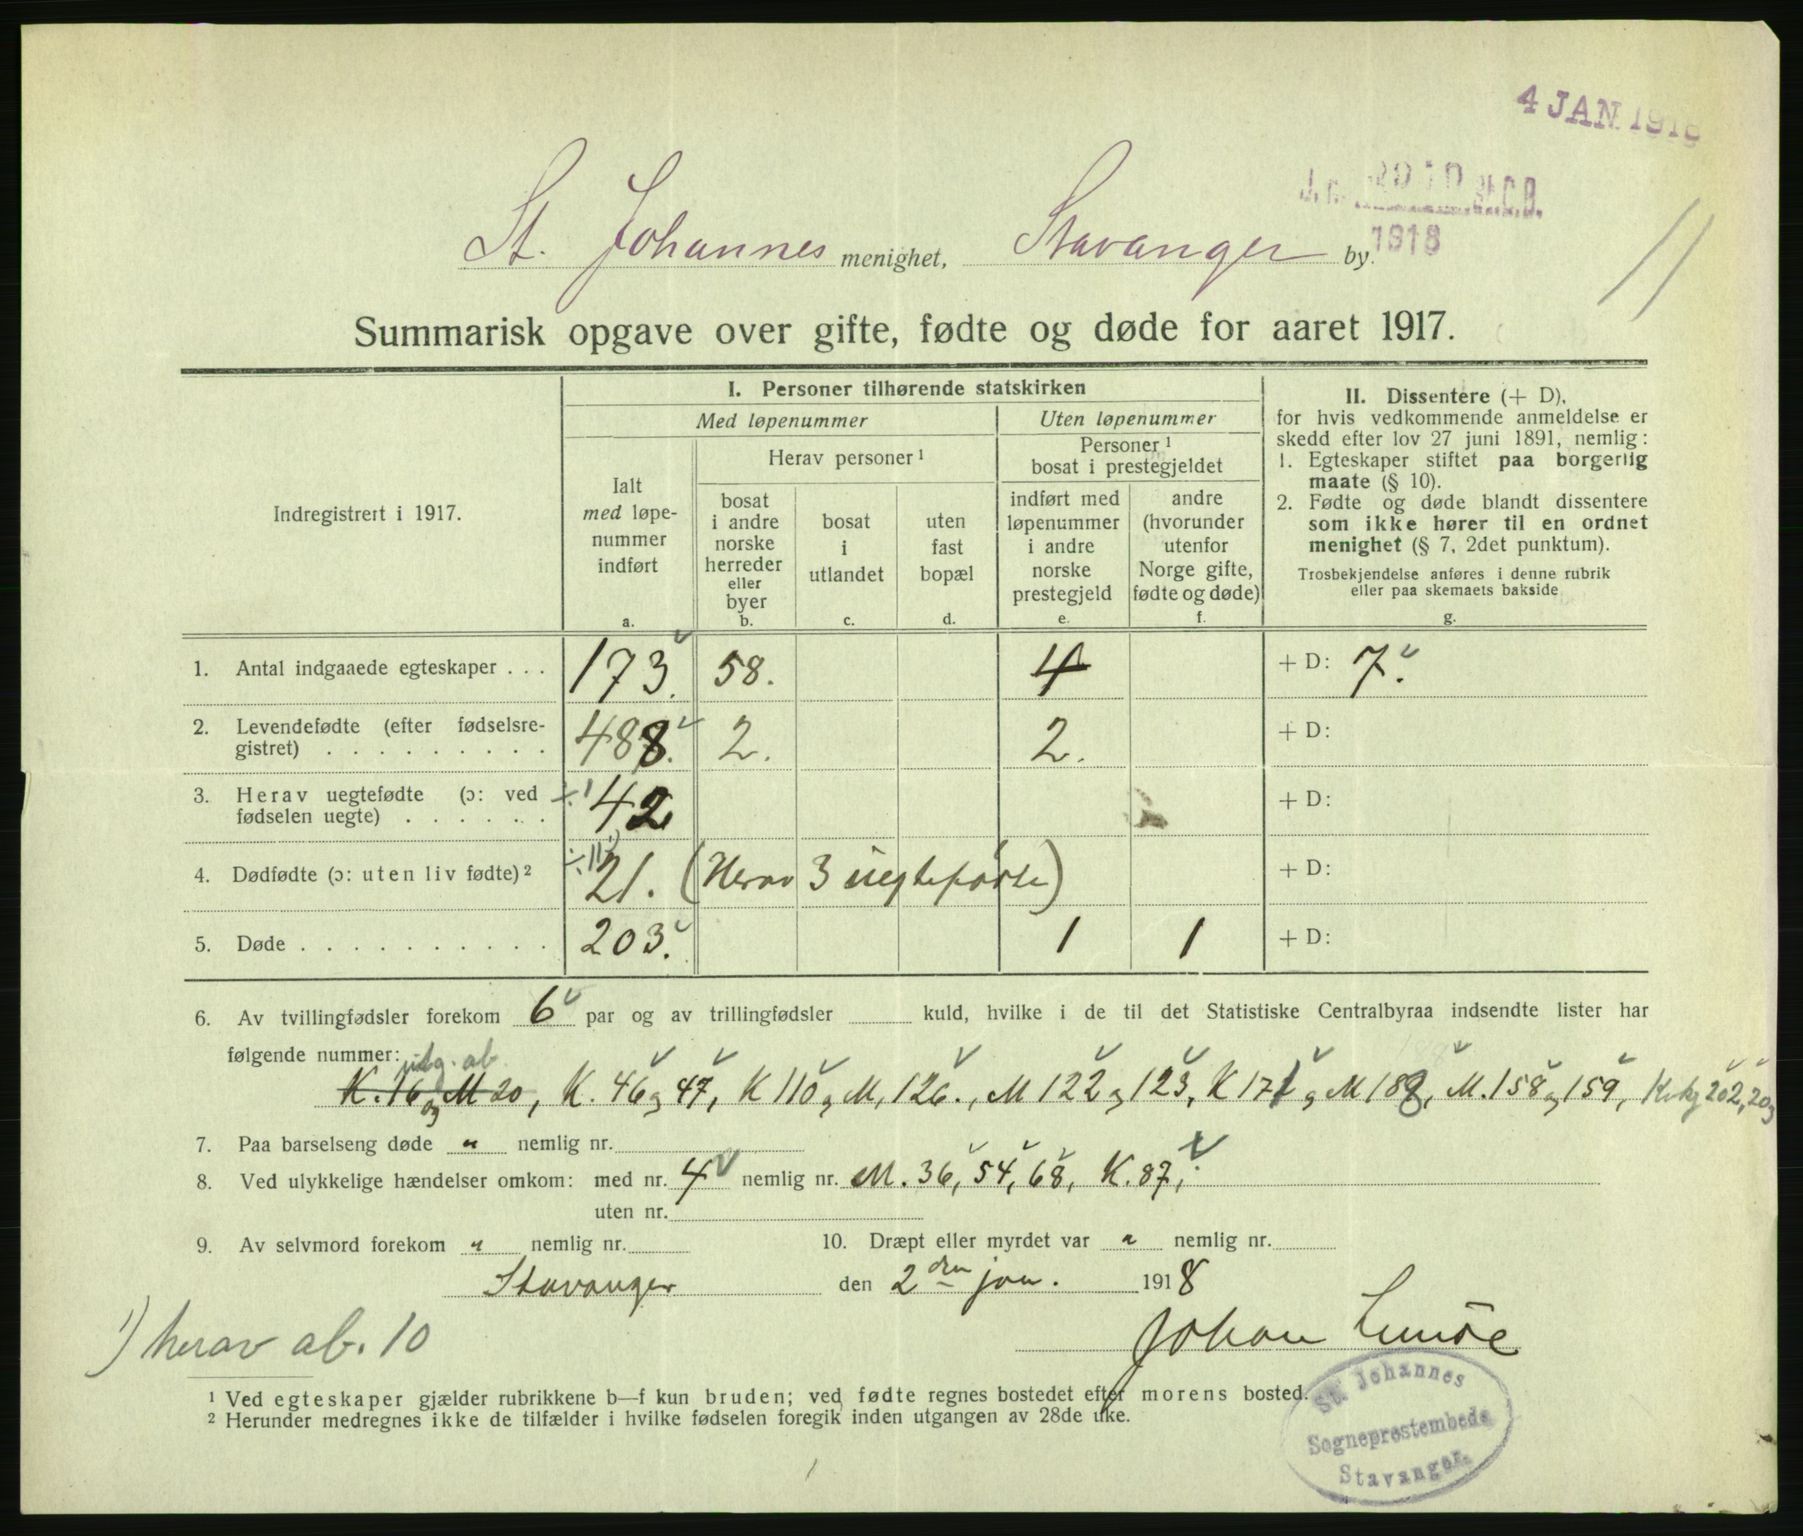 4 JAN 1918
J. n. St.C.B.
1918
11
St. Johannes menighet, Stavanger by.
Summarisk opgave over gifte, fødte og døde for aaret 1917.
Indregistrert i 1917.
I. Personer tilhørende statskirken
Med løpenummer
Uten løpenummer
Ialt
med løpe-
nummer
indført
a.
Herav personer ¹
bosat
i andre
norske
herreder
eller
byer
b.
bosat
i
utlandet
c.
uten
fast
bopæl
d.
Personer ¹
bosat i prestegjeldet
indført med
løpenummer
i andre
norske
prestegjeld
e.
andre
(hvorunder
utenfor
Norge gifte,
fødte og døde)
f.
II. Dissentere (+ D),
for hvis vedkommende anmeldelse er
skedd efter lov 27 juni 1891, nemlig:
1. Egteskaper stiftet paa borgerlig
maate (§ 10).
2. Fødte og døde blandt dissentere
som ikke hører til en ordnet
menighet (§ 7, 2det punktum).
Trosbekjendelse anføres i denne rubrik
eller paa skemaets bakside
g.
1. Antal indgaaede egteskaper . . . 173. 58. 4 + D: 7.
2. Levendefødte (efter fødselsre-
gistret) . . . . . . . . . 488. 2. 2. + D:
3. Herav uegtefødte (ɔ: ved
fødselen uegte) . . . . . . ÷1 42 + D:
4. Dødfødte (ɔ: uten liv fødte) ² ÷11) 21. (Herav 3 uegtefødte) + D:
5. Døde . . . . . . . . . . 203. 1 1 + D:
6. Av tvillingfødsler forekom 6 par og av trillingfødsler kuld, hvilke i de til det Statistiske Centralbyraa indsendte lister har
følgende nummer: utg. ab.
K. 16 og M 20, K. 46 og 47, K 110 og M. 126., M 122 og 123, K 171 og M 188, M. 158 og 159, K. og 202, 203
7. Paa barselseng døde " nemlig nr.
8. Ved ulykkelige hændelser omkom: med nr. 4 nemlig nr. M. 36, 54, 68, K. 87,
uten nr.
9. Av selvmord forekom " nemlig nr. 10. Dræpt eller myrdet var " nemlig nr.
Stavanger den 2den jan. 1918
Johan Lunde
1) herav ab. 10
¹ Ved egteskaper gjælder rubrikkene b—f kun bruden; ved fødte regnes bostedet efter morens bosted.
² Herunder medregnes ikke de tilfælder i hvilke fødselen foregik inden utgangen av 28de uke.
St. Johannes
Sogneprestembede
Stavanger.